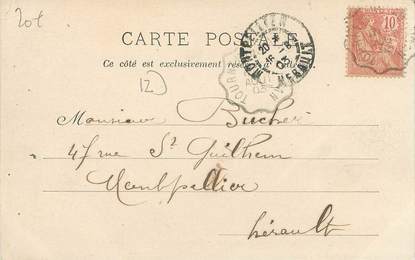 20f
CARTE POSTALE
Ce côté est exclusivement réservé
MONTPELLIER
HERAULT
TOURN
10
Monsieur Bucher
47 rue St Guilhem
Montpellier
hérault